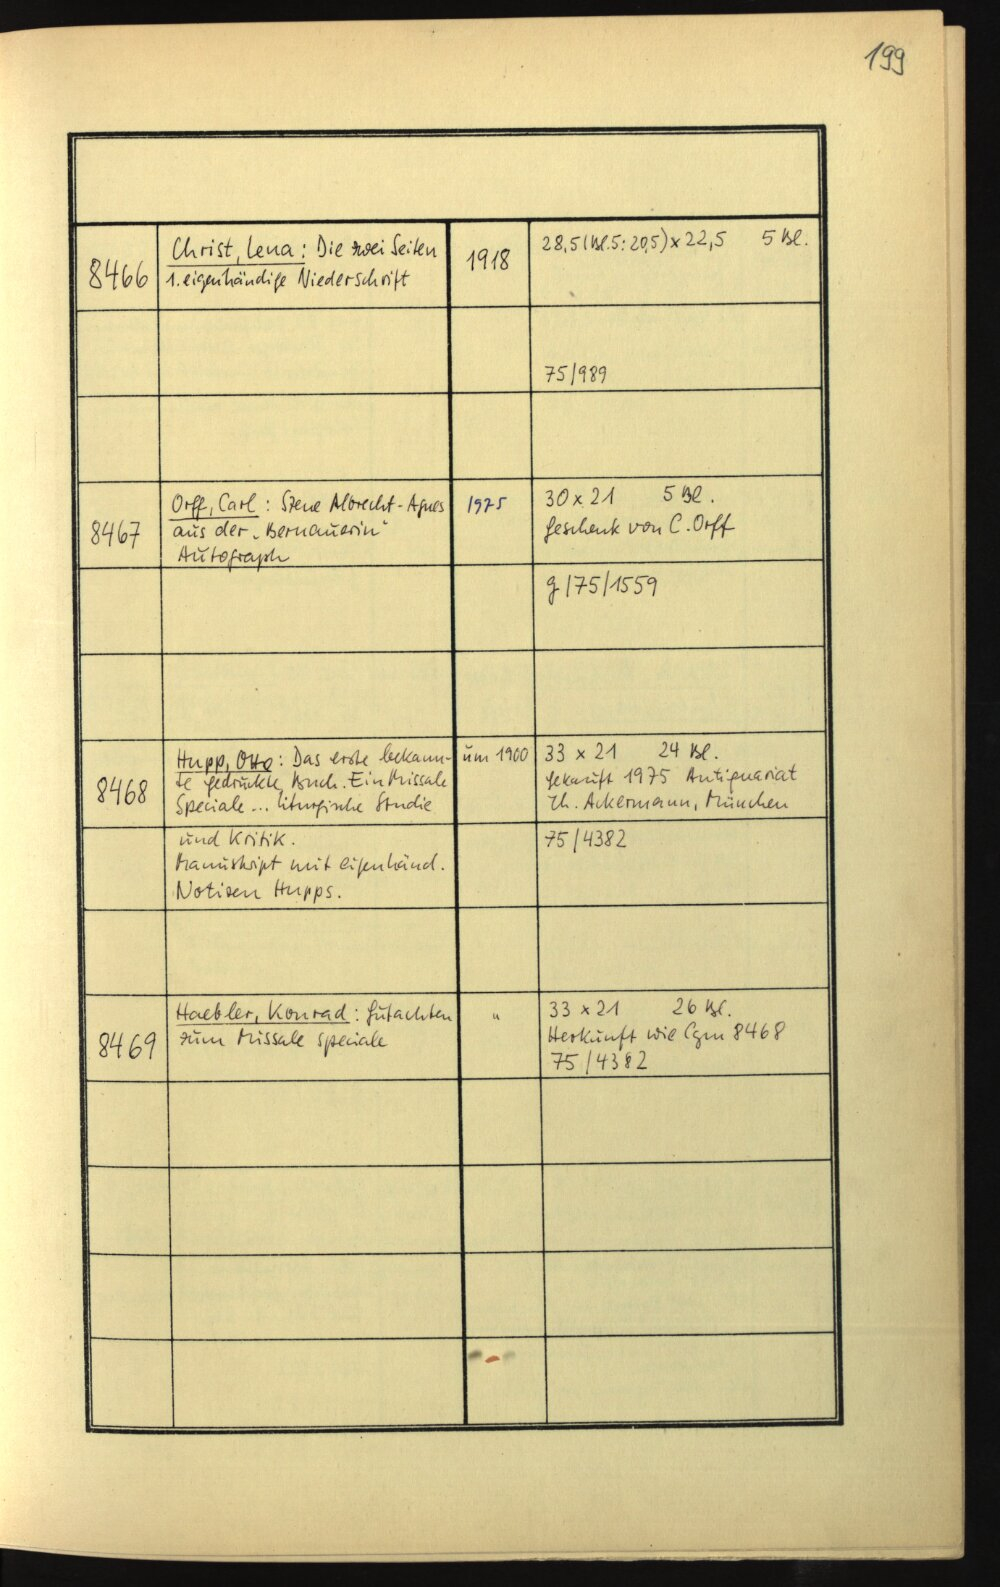 199
8466
Christ, Lena: Die zwei Seiten
1. eigenhändige Niederschrift
1918
28,5 (Bl.5: 20,5) x 22,5 5 Bl.
75/989
8467
Orff, Carl: Szene Albrecht-Agnes
aus der „Bernauerin"
Autograph
1975
30 x 21 5 Bl.
Geschenk von C. Orff
g/75/1559
8468
Hupp, Otto: Das erste bekann-
te gedruckte Buch. Ein Missale
Speciale... liturgische Studie
um 1900
33 x 21 24 Bl.
Gekauft 1975 Antiquariat
Th. Ackermann, München
und Kritik.
Manuskript mit eigenhänd.
Notizen Hupps.
75/4382
8469
Haebler, Konrad: Gutachten
zum Missale speciale
"
33 x 21 26 Bl.
Herkunft wie Cgm 8468
75/4382